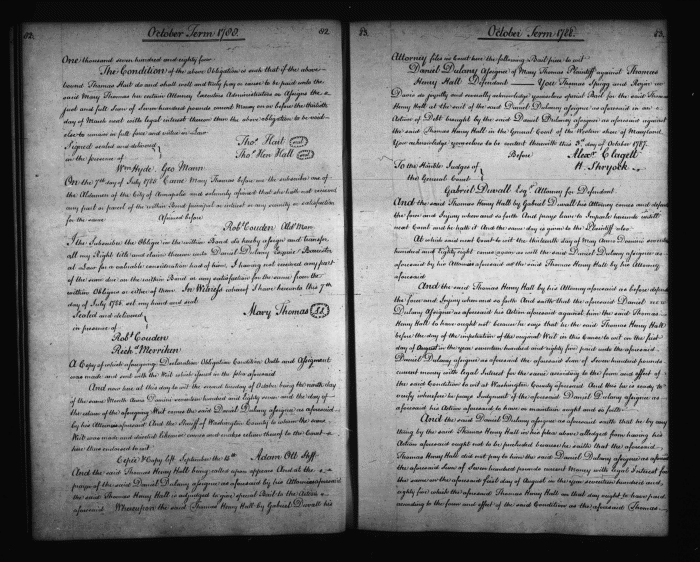 82.
October Term 1788.
82.
One thousand seven hundred and eighty four
The Condition of the above Obligation is such that if the above
bound Thomas Hall do and shall well and truly pay or cause to be paid unto the
said Mary Thomas her certain Attorney Executors Administrators or Assigns the
just and full Sum of Seven hundred pounds current Money on or before the
day of March next with legal interest thereon then the above obligation to be void
else to remain in full force and virtue in Law
Signed sealed and delivered
in the presence of
Thos. Hart
Thos. Hen Hall
Wm Hyde. Geo Mann
On the 7th day of July 1785 Came Mary Thomas before me the subscriber one of
the Aldermen of the City of Annapolis and solemnly affirmed that she hath not received
any part or parcel of the within Bond principal or interest or any security or satisfaction
for the same Affirmed before
Robt. Couden Ald. Man
I the Subscriber the Obligee in the within Bond do hereby assign and transfer
all my Right title and claim thereon unto Daniel Dulany Esquire Barrister
at Law for a valuable consideration had of him, I having not received any part
of the sum due on the within Bond or any satisfaction for the same from the
within Obligors or either of them In Witness whereof I have hereunto this 7th
day of July 1785 set my hand and seal
Sealed and delivered
in presence of
Mary Thomas
Robt. Couden
Richd. Merriken
A Copy of which aforegoing Declaration Obligation Condition Oath and Assignment
was made and sent with the Writ which issued in the plea aforesaid
And now here at this day to wit the second tuesday of October being the day
of the same Month Anno Domini seventeen hundred and eighty seven and the day of
the return of the aforegoing Writ comes the said Daniel Dulany Assignee as aforesaid
by his Attornies aforesaid And the Sheriff of Washington County to whom the same
Writ was made and directed likewise comes and makes return thereof to the Court
here thus endorsed to wit
Cepi & Copy left September the
Adam Ott Shff.
And the said Thomas Henry Hall being called upon appears And at the
prayer of the said Daniel Dulany assignee as aforesaid by his Attornies aforesaid
the said Thomas Henry Hall is adjudged to give special Bail to the Action
aforesaid Whereupon the said Thomas Henry Hall by Gabriel Duvall his
83.
October Term 1788.
83.
Attorney files in Court here the following Bail piece to wit
Daniel Dulany Assignee of Mary Thomas Plaintiff against Thomas
Henry Hall Defendant You Thomas Sprigg and Rezin
Davis as joyntly and severally acknowledge yourselves Bail for the said Thomas
Henry Hall at the suit of the said Daniel Dulany assignee as aforesaid in an
Action of Debt brought by the said Daniel Dulany assignee as aforesaid against
the said Thomas Henry Hall in the General Court of the Western shore of Maryland
You acknowledge yourselves to be content therewith this 3d. day of October 1787.
Before
Alexr. Clagett
H. Shryock
To the Honble Judges of
the General Court
Gabriel Duvall Esqr. Attorney for Defendant.
And the said Thomas Henry Hall by Gabriel Duvall his Attorney comes and defends
the force and Injury when and so forth And prays leave to Imparle hereunto untill
next Court and he hath it And the same day is given to the Plaintiff also
At which said next Court to wit the thirteenth day of May Anno Domini seventeen
hundred and eighty eight comes again as well the said Daniel Dulany assignee as
aforesaid by his Attornies aforesaid as the said Thomas Henry Hall by his Attorney
aforesaid
And the said Thomas Henry Hall by his Attorney as aforesaid as before defends
the force and Injury when and so forth And saith that the aforesaid Daniel
Dulany Assignee as aforesaid his Action aforesaid against him the said Thomas
Henry Hall to have ought not because he says that he the said Thomas Henry Hall
before the day of the impetration of the original Writ in this Cause to wit on the first
day of August in the year seventeen hundred and eighty paid unto the aforesaid
Daniel Dulany assignee as aforesaid the aforesaid Sum of Seven hundred pounds
current money with legal Interest for the same according to the form and effect of
the said Condition to wit at Washington County aforesaid And this he is ready to
verify wherefore he prays Judgment if the aforesaid Daniel Dulany assignee as
aforesaid his Action aforesaid to have or maintain ought and so forth
And the said Daniel Dulany assignee as aforesaid saith that he by any
thing by the said Thomas Henry Hall in his plea above alledged from having his
Action aforesaid ought not to be precluded because he saith that the aforesaid
Thomas Henry Hall did not pay to him the said Daniel Dulany assignee as aforesaid
the aforesaid Sum of Seven hundred pounds current Money with legal Interest for
the same on the aforesaid first day of August in the year seventeen hundred and
eighty five which the aforesaid Thomas Henry Hall on that day ought to have paid
according to the form and effect of the said Condition as the aforesaid Thomas